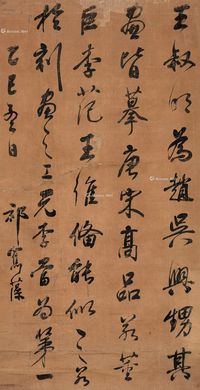 王叔明為趙吳興甥其
畫皆摹唐宋高品若董
巨李范王維備能似之若
於刻畫之工元季當為第一
乙巳日 祁寯藻